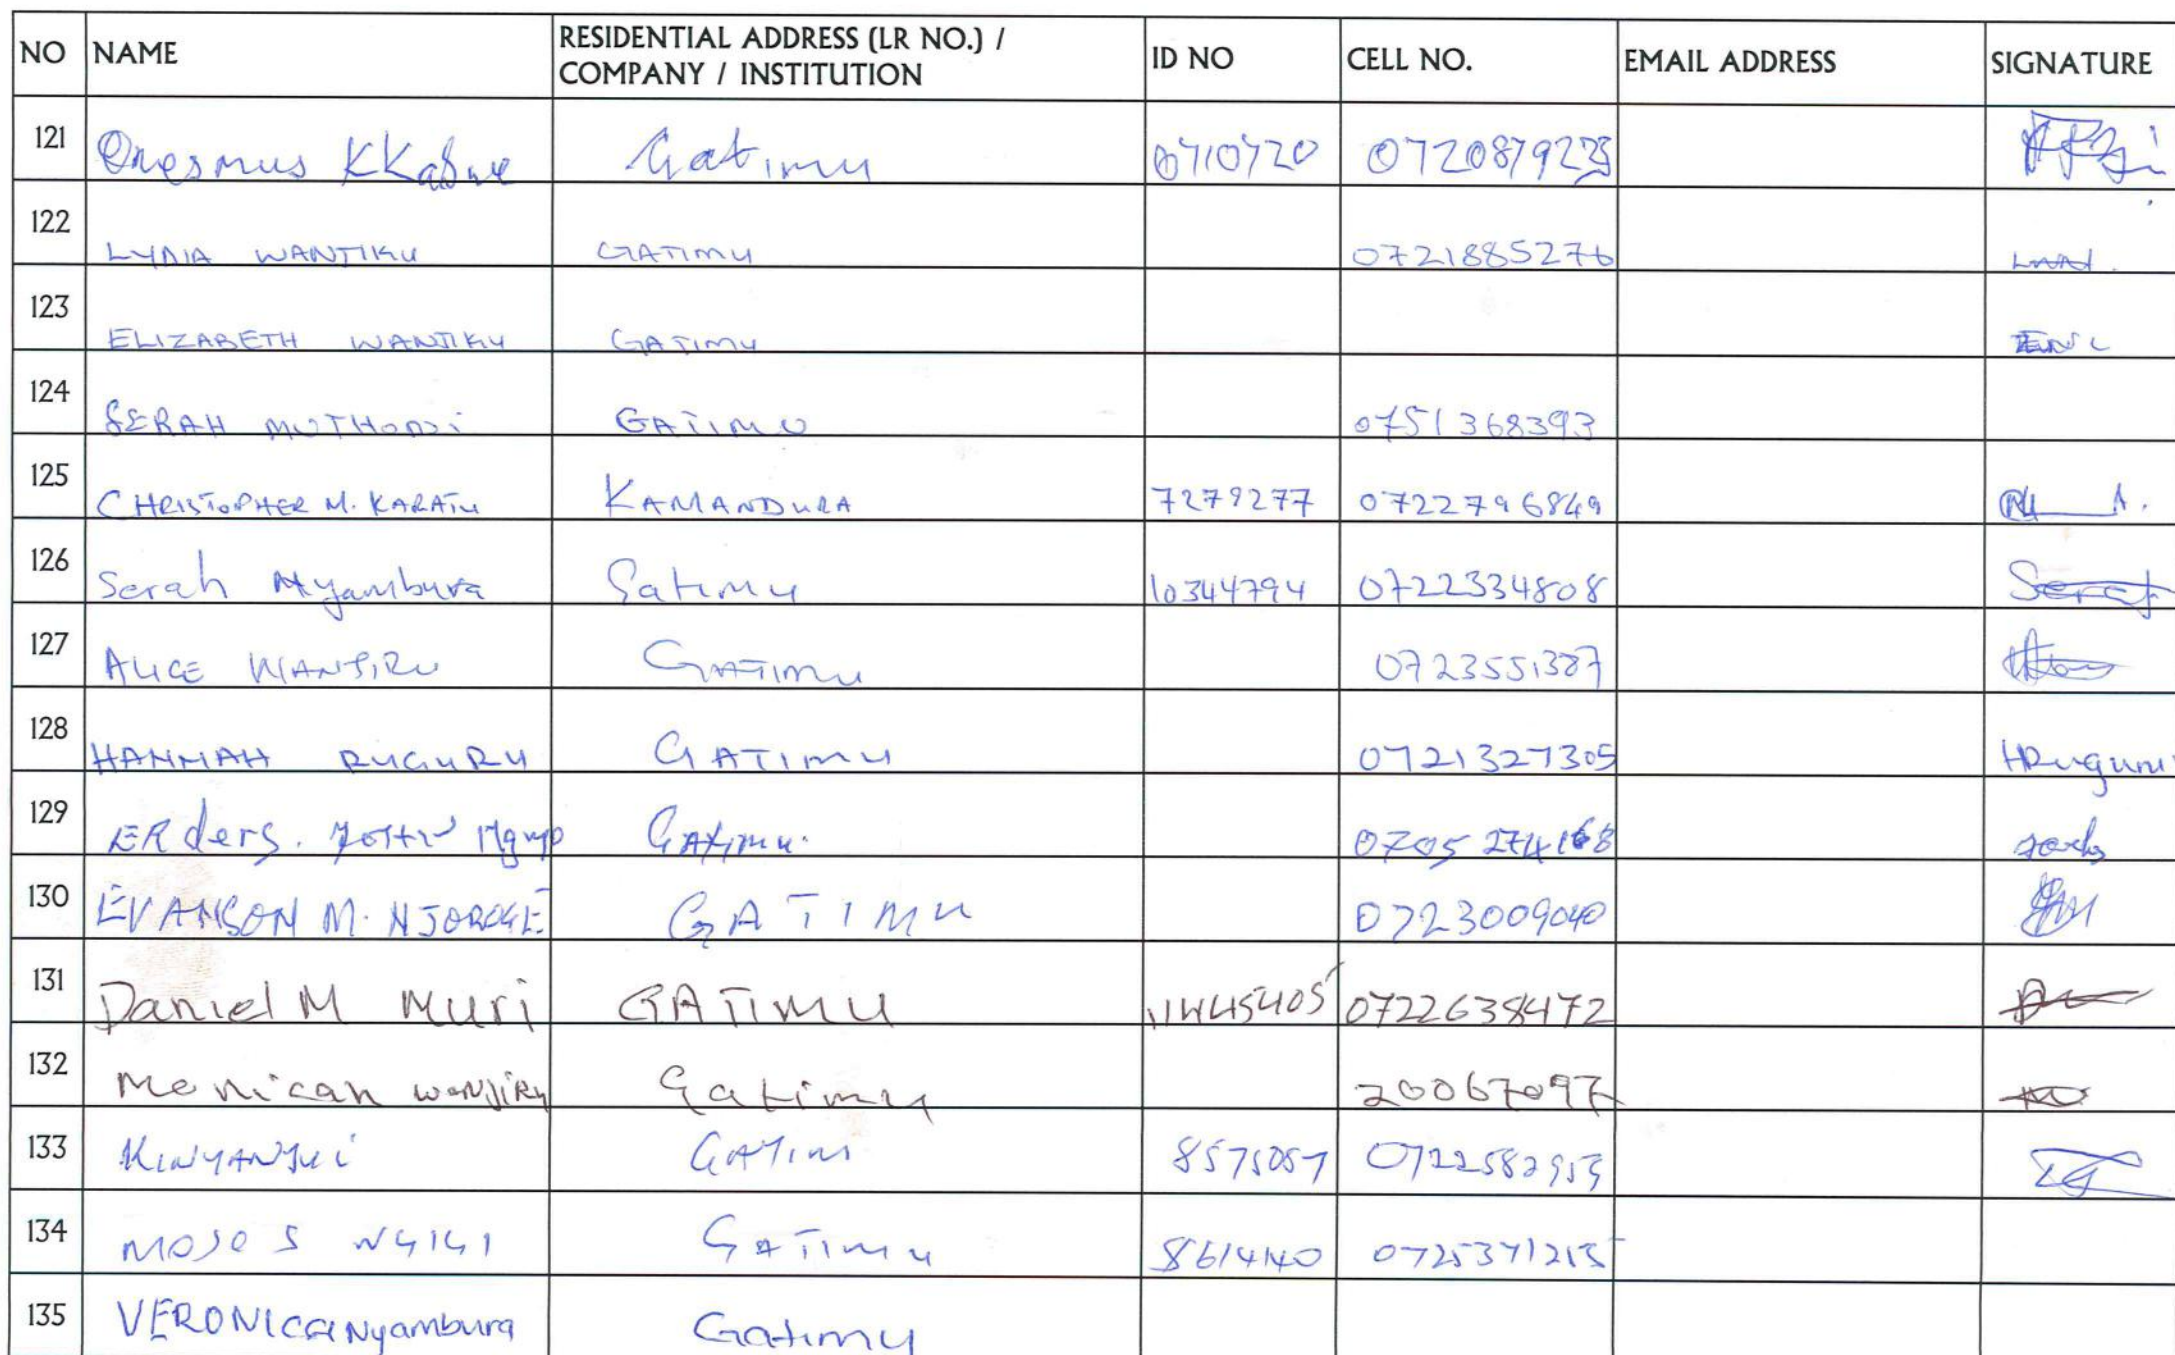 NO NAME RESIDENTIAL ADDRESS (LR NO.) / COMPANY / INSTITUTION ID NO CELL NO. EMAIL ADDRESS SIGNATURE
121 Onesmus K Gatimu 0710720
122 LYDIA WANJIKU GATIMU 0721885276
123 ELIZABETH WANJIKU GATIMU
124 SERAH MUTHONI GATIMU 0751368393
125 CHRISTOPHER M. KARATU KAMANDURA 7279277 0722796849
126 Serah Nyambura Gatimu 10344794 0722334808 Serah
127 ALICE WANJIRU GATIMU 0723551387
128 HANNAH RUGURU GATIMU 0721327305 HRuguru
129 Gatimu. 0705 274168
130 EVANSON M. NJOROGE GATIMU 0723009040
131 Daniel M Muri GATIMU 0722638472
132 Monicah WANJIRU Gatimu 20067097
133 KINYANJUI GATIMU 8575057 0722582953
134 MOSES NGIGI GATIMU 8614140 0725371215
135 VERONICA Nyambura Gatimu